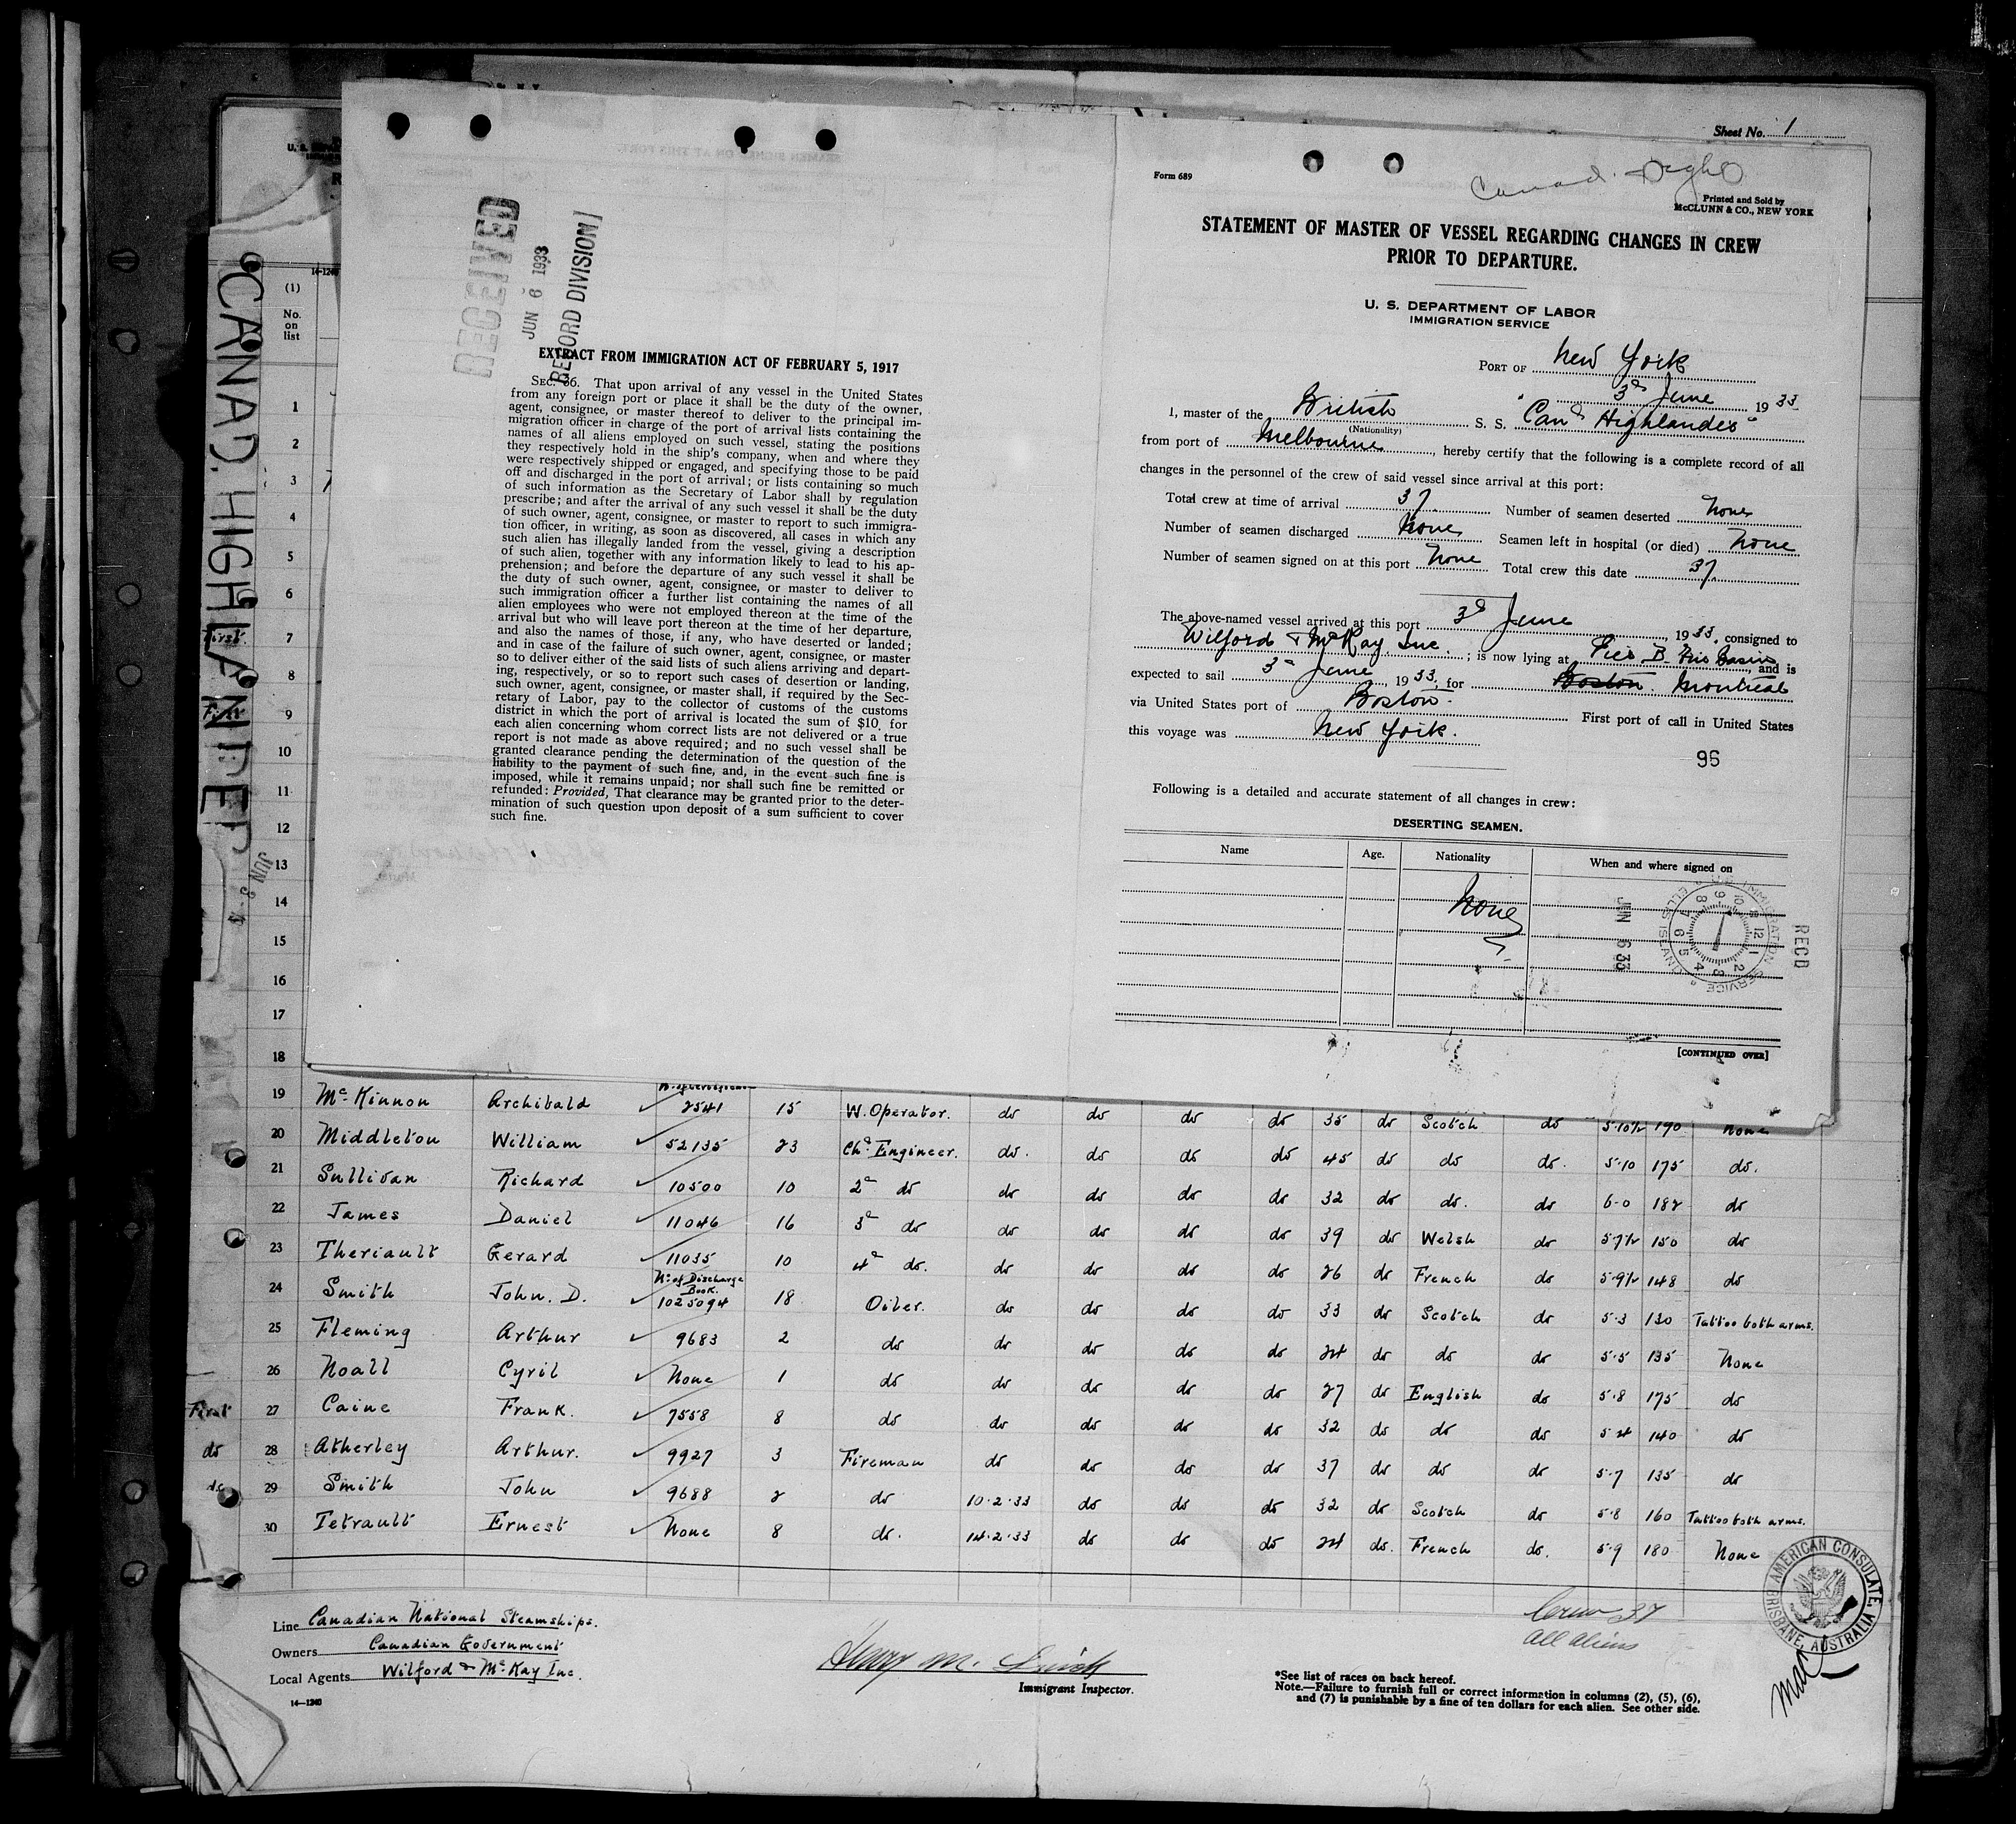 Sheet No. 1
Form 689
Printed and Sold by
McCLUNN & CO., NEW YORK
STATEMENT OF MASTER OF VESSEL REGARDING CHANGES IN CREW
PRIOR TO DEPARTURE.
U. S. DEPARTMENT OF LABOR
IMMIGRATION SERVICE
PORT OF New York
3d June 1933
I, master of the British S. S. "Can Highlander"
(Nationality)
from port of Melbourne, hereby certify that the following is a complete record of all
changes in the personnel of the crew of said vessel since arrival at this port:
Total crew at time of arrival 37. Number of seamen deserted None
Number of seamen discharged None Seamen left in hospital (or died) None
Number of seamen signed on at this port None Total crew this date 37.
The above-named vessel arrived at this port 3d June, 1933, consigned to
Wilford & McKay Inc.; is now lying at Pier B. Erie Basin and is
expected to sail 3d June, 1933, for Boston. Montreal
via United States port of Boston. First port of call in United States
this voyage was New York.
96
Following is a detailed and accurate statement of all changes in crew:
DESERTING SEAMEN.
Name Age. Nationality When and where signed on
None
RECD
JUN 6 33
U.S. IMMIGRATION SERVICE
ELLIS ISLAND
[CONTINUED OVER]
RECEIVED
JUN 6 1933
RECORD DIVISION
EXTRACT FROM IMMIGRATION ACT OF FEBRUARY 5, 1917
SEC. 36. That upon arrival of any vessel in the United States
from any foreign port or place it shall be the duty of the owner,
agent, consignee, or master thereof to deliver to the principal im-
migration officer in charge of the port of arrival lists containing the
names of all aliens employed on such vessel, stating the positions
they respectively hold in the ship's company, when and where they
were respectively shipped or engaged, and specifying those to be paid
off and discharged in the port of arrival; or lists containing so much
of such information as the Secretary of Labor shall by regulation
prescribe; and after the arrival of any such vessel it shall be the duty
of such owner, agent, consignee, or master to report to such immigra-
tion officer, in writing, as soon as discovered, all cases in which any
such alien has illegally landed from the vessel, giving a description
of such alien, together with any information likely to lead to his ap-
prehension; and before the departure of any such vessel it shall be
the duty of such owner, agent, consignee, or master to deliver to
such immigration officer a further list containing the names of all
alien employees who were not employed thereon at the time of the
arrival but who will leave port thereon at the time of her departure,
and also the names of those, if any, who have deserted or landed;
and in case of the failure of such owner, agent, consignee, or master
so to deliver either of the said lists of such aliens arriving and depart-
ing, respectively, or so to report such cases of desertion or landing,
such owner, agent, consignee, or master shall, if required by the Sec-
retary of Labor, pay to the collector of customs of the customs
district in which the port of arrival is located the sum of $10 for
each alien concerning whom correct lists are not delivered or a true
report is not made as above required; and no such vessel shall be
granted clearance pending the determination of the question of the
liability to the payment of such fine, and, in the event such fine is
imposed, while it remains unpaid; nor shall such fine be remitted or
refunded: Provided, That clearance may be granted prior to the deter-
mination of such question upon deposit of a sum sufficient to cover
such fine.
CANAD. HIGHLANDER
14-1240
(1)
No.
on
list
1
2
3
4
5
6
First 7
8
First 9
10
11
12
13
14
15
16
17
18
19 McKinnon Archibald 2541 15 W. Operator. do do do do 35 do Scotch do 5·10½ 190 none
20 Middleton William 52135 23 Chf Engineer. do. do do do 45 do do do. 5·10 175 do.
21 Sullivan Richard 10500 10 2d do do do do do 32 do do. do 6·0 182 do
22 James Daniel 11046 16 3d do do do do do 39 do Welsh do 5·7½ 150 do
23 Theriault Gerard 11035 10 4th do. do do do do 26 do French do 5·9½ 148 do
No. of Discharge
Book.
24 Smith John. D. 1025094 18 Oiler. do do do do 33 do Scotch do 5·3 130 Tattoo both arms.
25 Fleming Arthur 9683 2 do do do do do 24 do do do 5·5 135 None
26 Noall Cyril None 1 do do do do do 27 do English do 5·8 175 do
First 27 Caine Frank. 7558 8 do do do do do 32 do do do 5·4 140 do
do 28 Atherley Arthur. 9927 3 Fireman do do do do 37 do do do 5·7 135 do
do 29 Smith John 9688 2 do 10·2·33 do do do 32 do Scotch do 5·8 160 Tattoo both arms.
30 Tetrault Ernest None 8 do. 14·2·33 do do do 24 do. French do. 5·9 180 None
Line Canadian National Steamships.
Owners Canadian Government
Local Agents Wilford & McKay Inc.
14—1240
Immigrant Inspector.
Crew 37
all aliens
*See list of races on back hereof.
Note.—Failure to furnish full or correct information in columns (2), (5), (6),
and (7) is punishable by a fine of ten dollars for each alien. See other side.
AMERICAN CONSULATE,
BRISBANE, AUSTRALIA